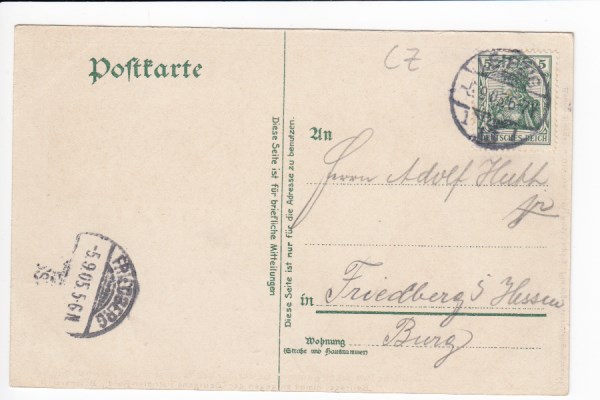 Postkarte
CZ
5 5
9.05.
DEUTSCHES REICH
Diese Seite ist für briefliche Mitteilungen
Diese Seite ist nur für die Adresse zu benutzen.
An
Herrn Adolf
jr
in Friedberg i Hessen
Wohnung
(Straße und Hausnummer)
Burg
FRIEDBERG
-5.9.05.5-6N